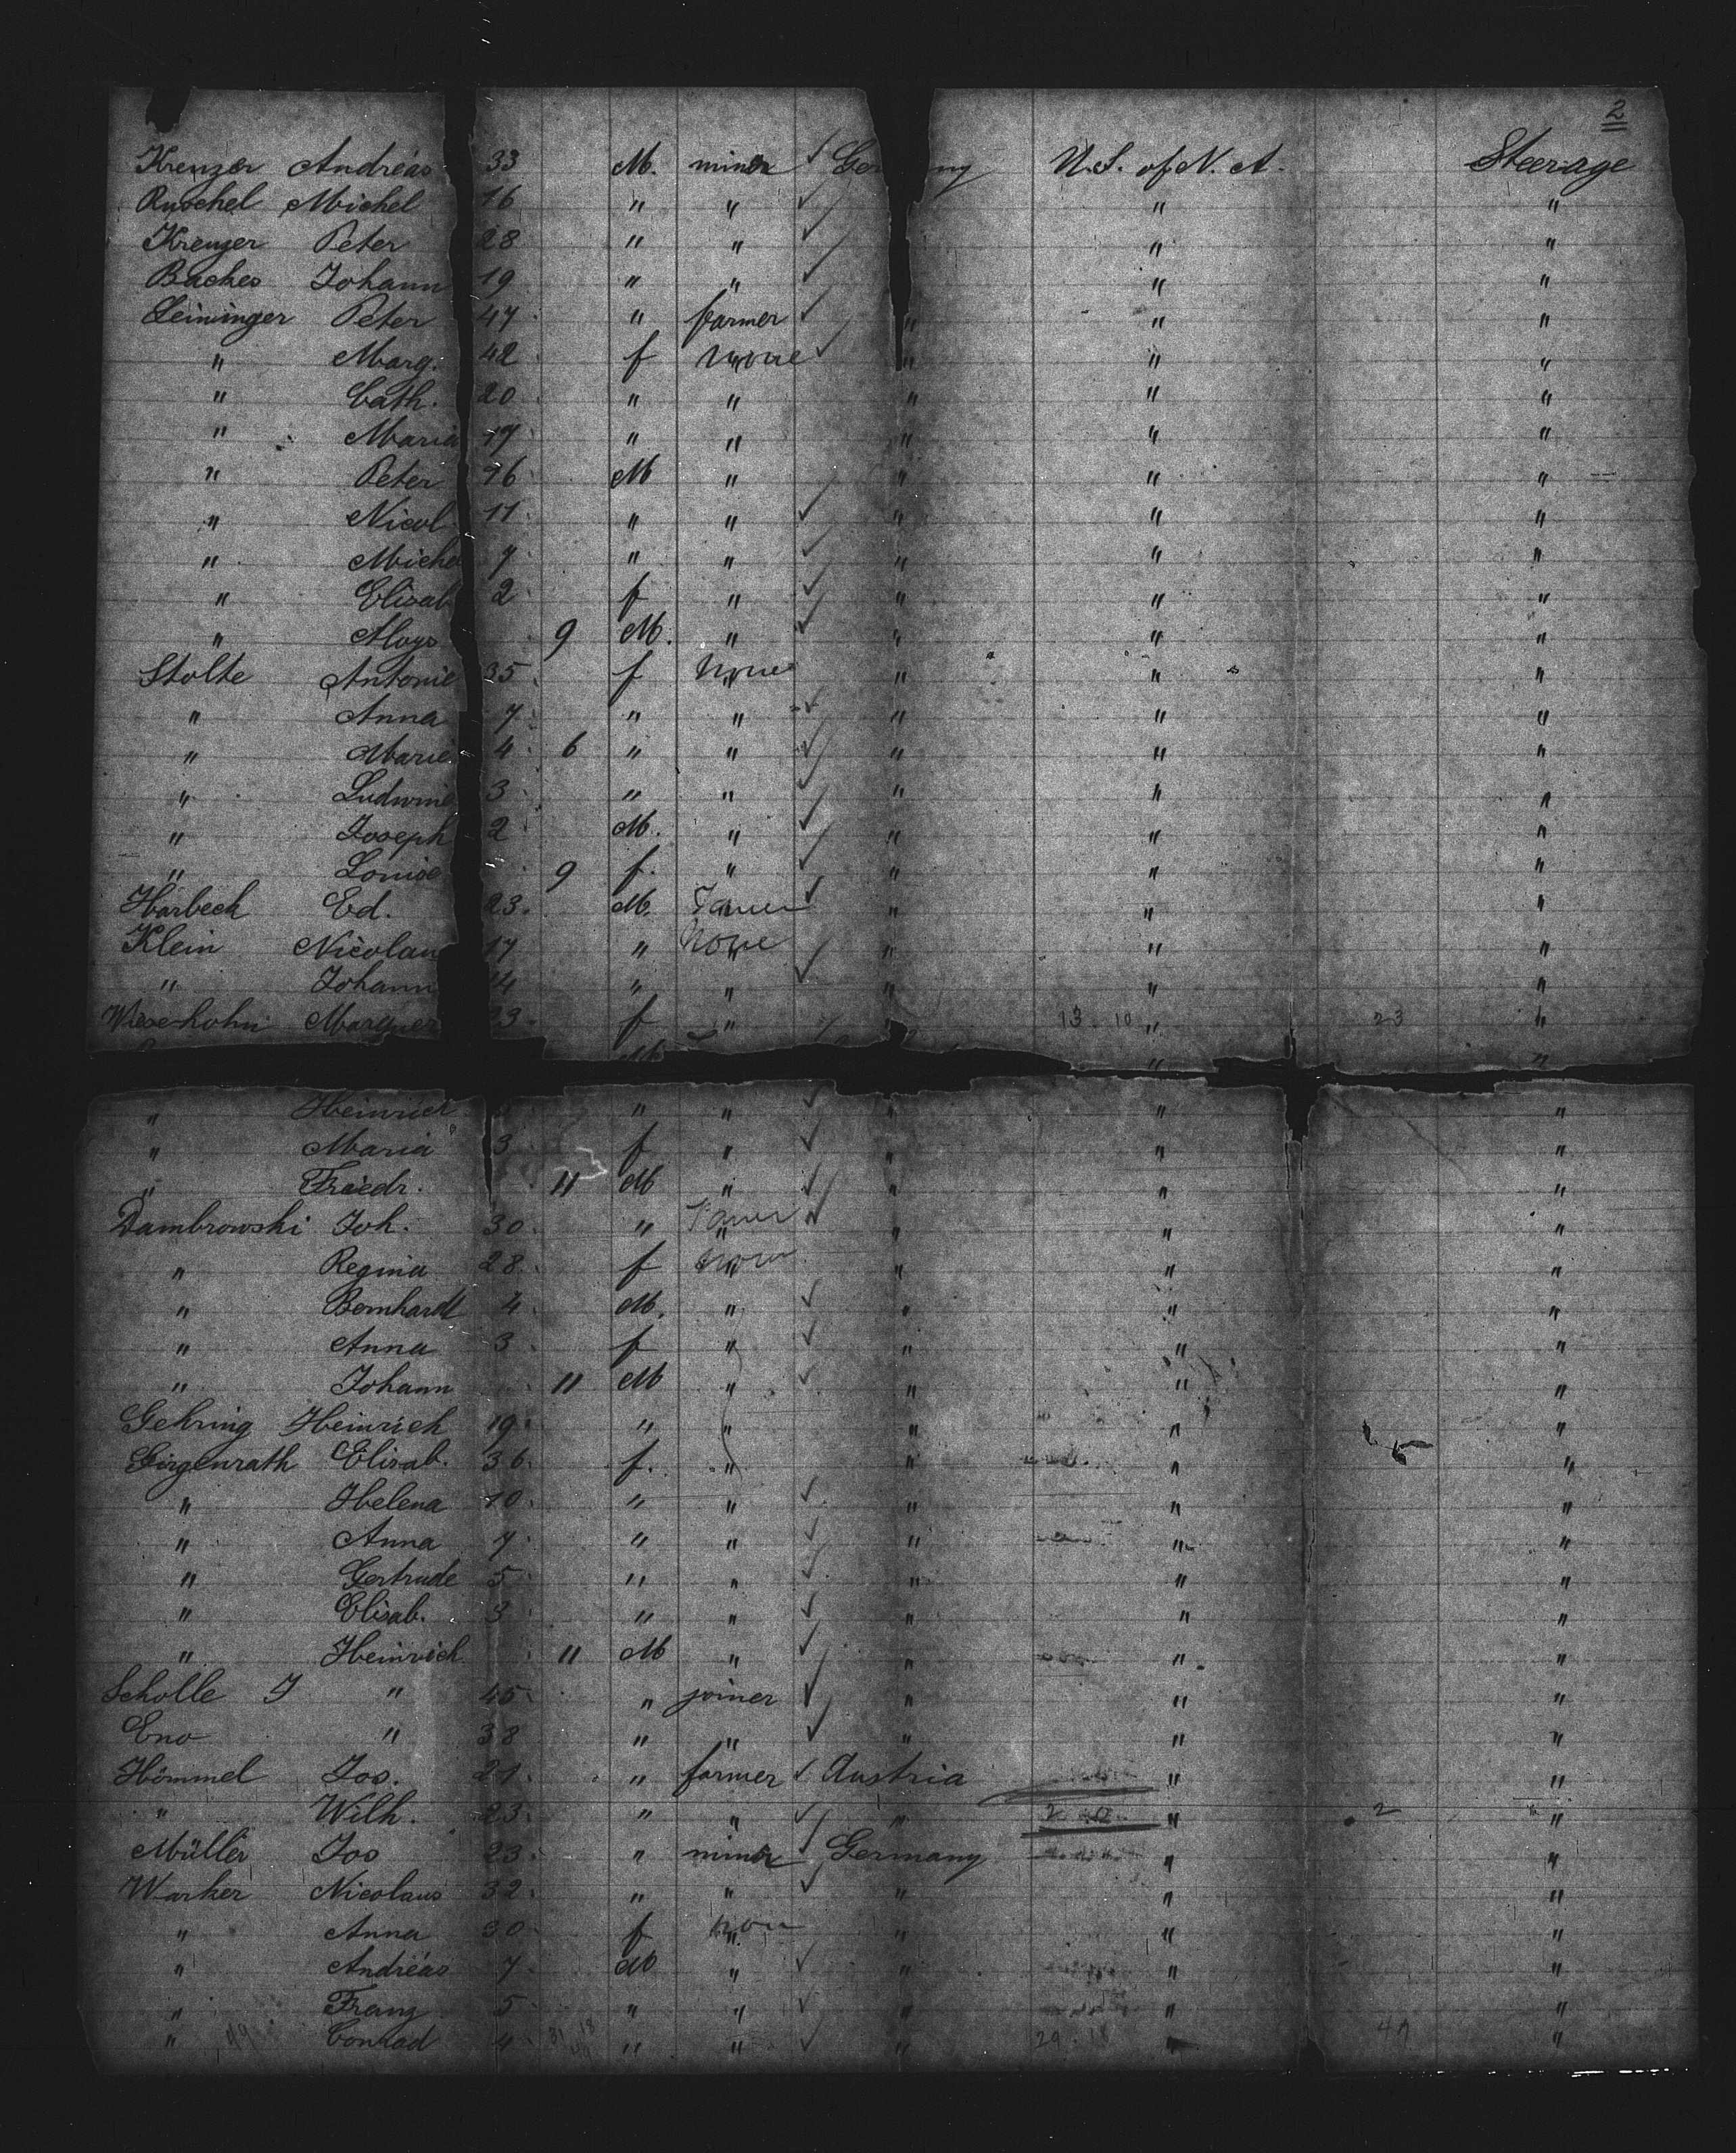 2
Kreuzer Andréas 33 M. miner ✓ Ger ny U.S. of N. A. Steerage
Ruschel Michel 16 " " ✓ " "
Kreuzer Peter 28 " " ✓ " "
Backes Johann 19 " " ✓ " "
Leininger Peter 47 " farmer ✓ " " "
" Marg. 42 f none ✓ " " "
" Cath. 20 " " " " "
" Maria 17 " " " " "
" Peter 16 M " " " "
" Nicol 11 " " ✓ " " "
" Miche 7 " " ✓ " " "
" Elisab 2 f " ✓ " " "
" Aloys 9 M. " ✓ " " "
Stolte Antonie 35 f None " " "
" Anna 7 " " ✓ " " "
" Marie 4 6 " " ✓ " " "
" Ludwine 3 " " ✓ " " "
" Joseph 2 M. " ✓ " " "
" Louise 9 f. " ✓ " " "
Harbeck Ed. 23. M. ✓ " " "
Klein Nicolau 17 " None " " "
" Johann 14 " " ✓ " " "
23. f " 13 . 10 " 23 "
M " "
" Heinrich " " ✓ " " "
" Maria 3 f " ✓ " " "
" Friedr. 11 M " ✓ " " "
Dambrowski Joh. 30 " ✓ " " "
" Regina 28 f None " " "
" Bernhardt 4 M. " ✓ " " "
" Anna 3 f " ✓ " " "
" Johann 11 M " ✓ " " "
Gehring Heinrich 19 " " " " "
Girgenrath Elisab. 36 f. " " " "
" Helena 10 " " ✓ " " "
" Anna 7 " " ✓ " " "
" Gertrude 5 " " ✓ " " "
" Elisab. 3 " " ✓ " " "
" Heinrich 11 M " ✓ " " "
Scholle J " 45 " joiner ✓ " " "
Eno " 38 " " ✓ " " "
Hömmel Jos. 21 " farmer ✓ Austria " "
" Wilh. 23 " " ✓ " " 2 "
Müller Jos 23 " miner ✓ Germany " "
Warker Nicolaus 32 " " ✓ " " "
" Anna 30 f non " " "
" Andréas 7 M " ✓ " " "
" Franz 5 " " ✓ " " "
" Conrad 4 31 18 " " ✓ " 29 . 18 47 "